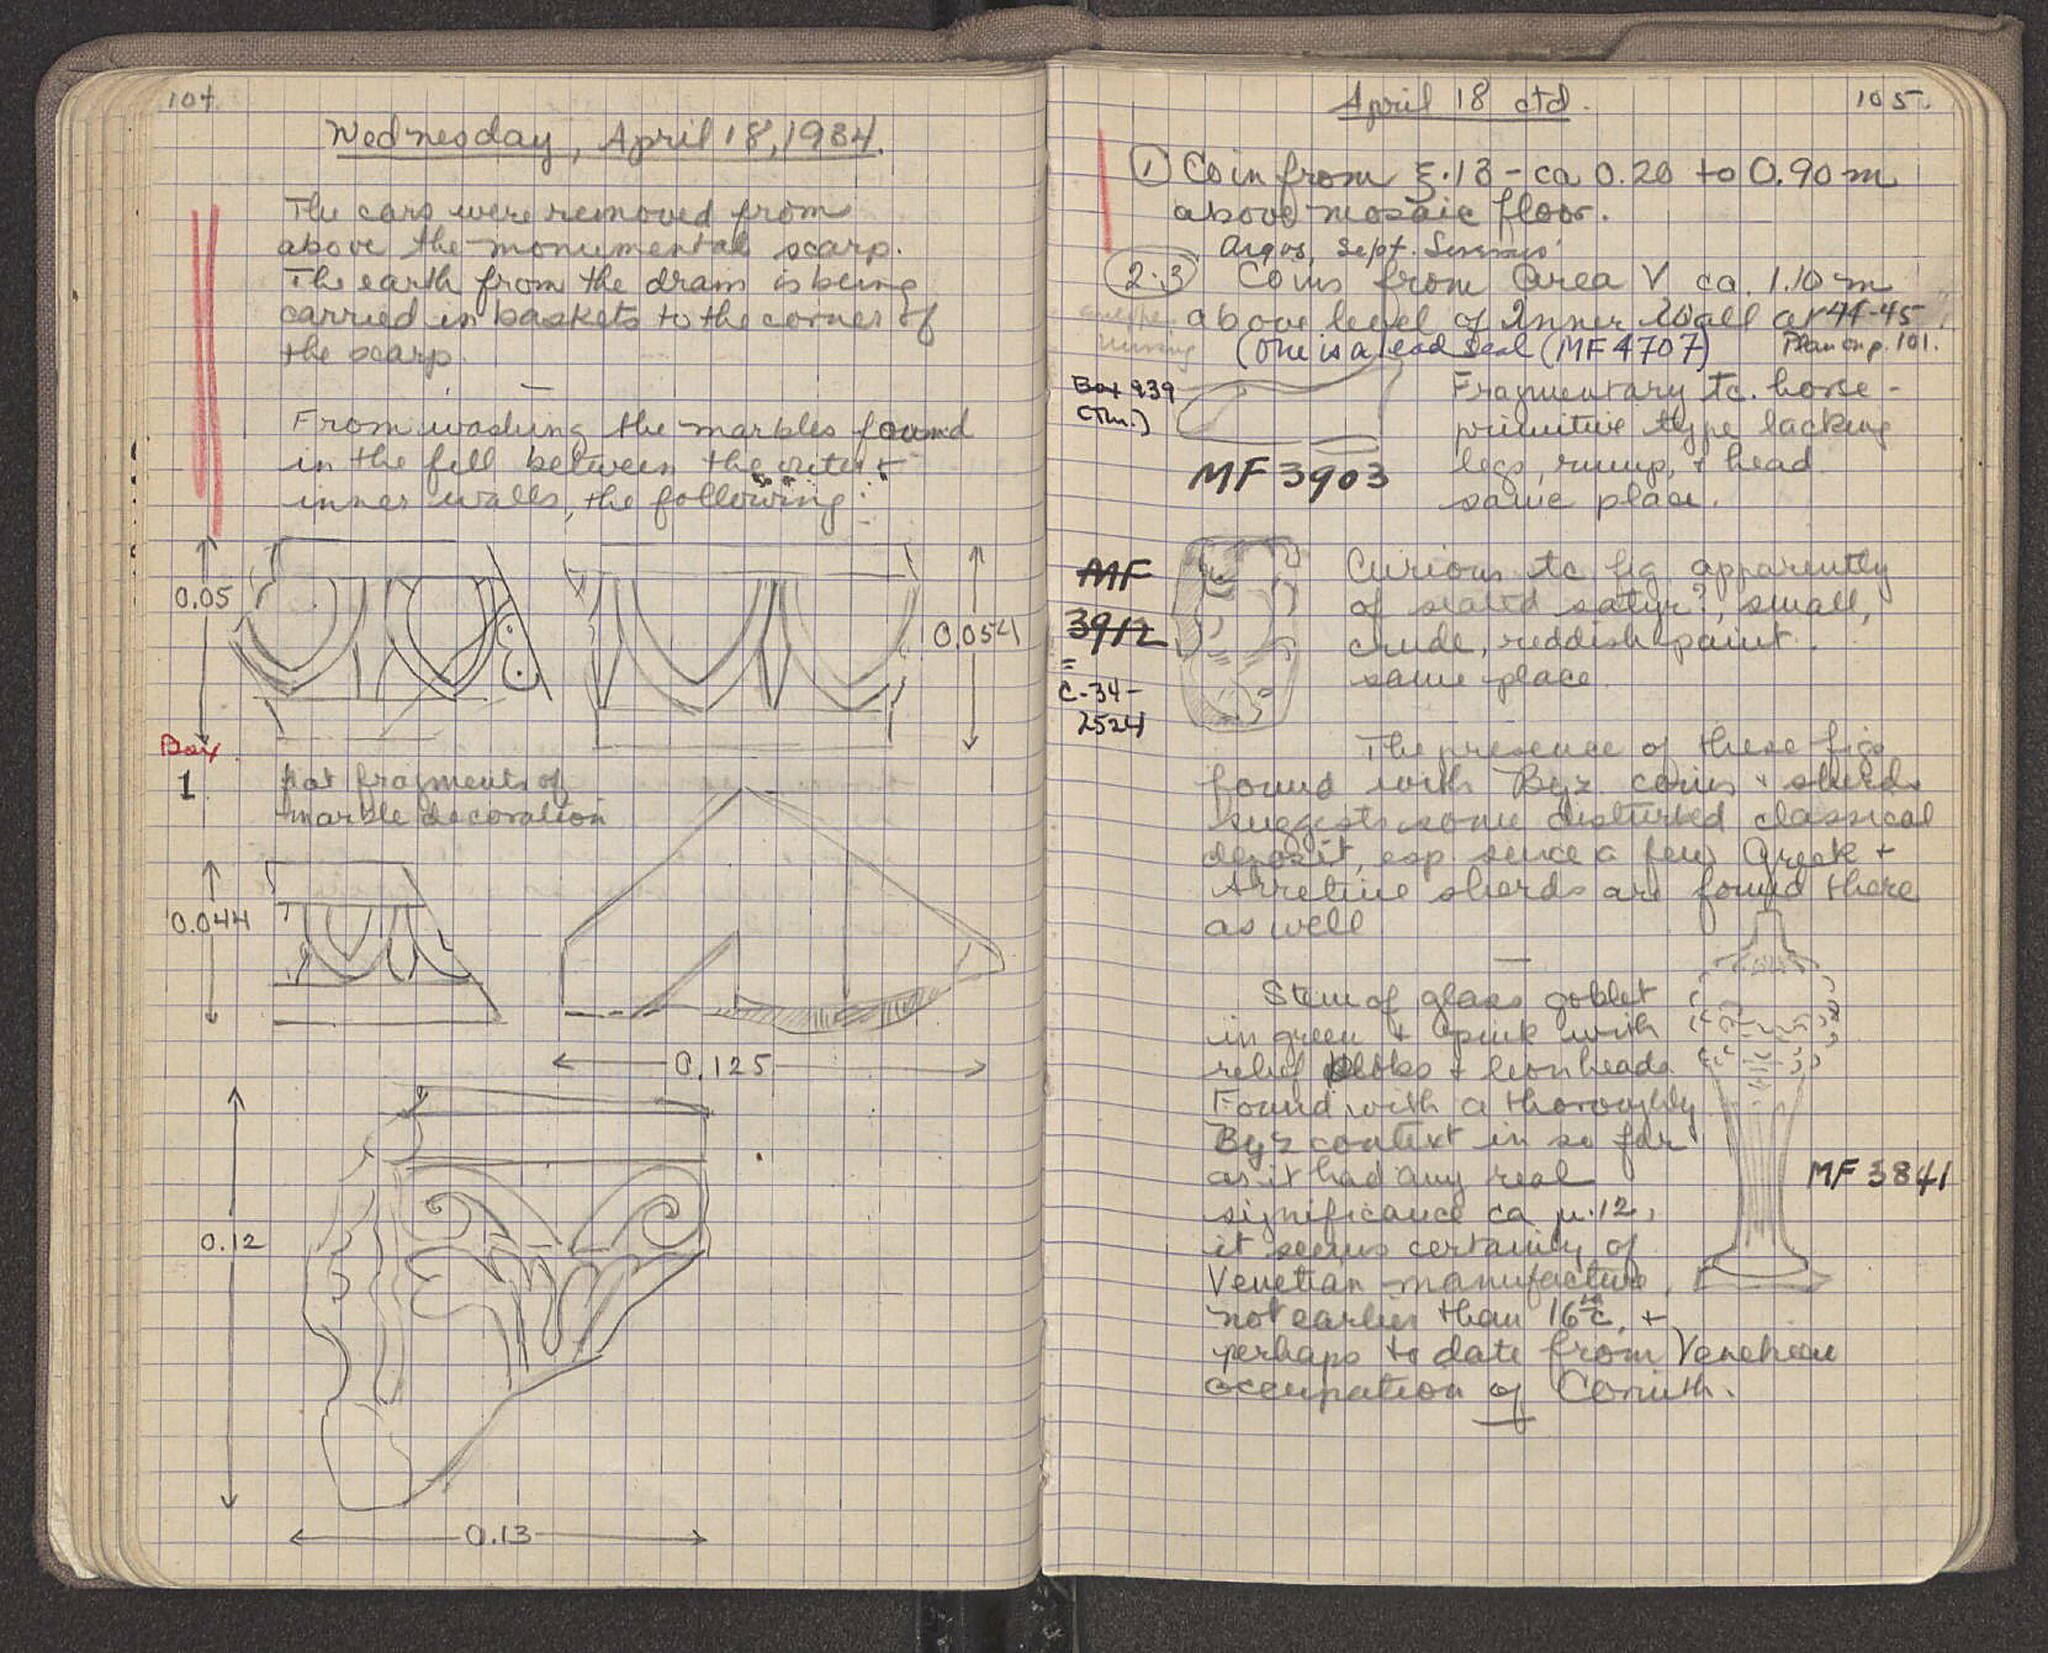 104
Wednesday, April 18, 1934.
The cars were removed from
above the monumental scarp.
The earth from the drain is being
carried in baskets to the corner of
the scarp.
From washing the marbles found
in the fill between the outer +
inner walls, the following:
0.05
0.054
Box
1
flat fragments of
marble decoration
0.044
0.125
0.12
0.13
April 18 ctd.
105.
① Coin from ξ.13 - ca 0.20 to 0.90 m
above mosaic floor.
Argos, Sept. Severus
2.3 Coins from Area V ca. 1.10 m
above level of Inner Wall at 44-45.
missing
(One is a lead seal (MF 4707)
Plan on p. 101.
Box 939
(Thn.)
Fragmentary tc. horse -
primitive type lacking
legs, rump, + head
same place.
MF 3903
MF
3912
=
C-34-
2524
Curious tc fig. apparently
of seated satyr?, small,
crude, reddish paint.
same place
The presence of these figs
found with Byz. coins + sherds
suggests some disturbed classical
deposit, esp. since a few Greek +
Arretine sherds are found there
as well
Stem of glass goblet
in green + pink with
relief blobs + lion heads
Found with a thoroughly
Byz context in so far
as it had any real
significance ca μ.12,
it seems certainly of
Venetian manufacture,
not earlier than 16th c. +
perhaps to date from Venetian
occupation of Corinth.
MF 3841